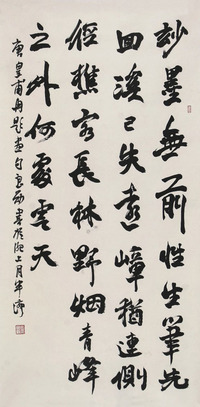 妙墨無前性生筆先
回溪已失遠嶂猶連側
徑樵客長林野烟青峰
之外何處雲天
唐皇甫冉題畫句
書於
上月